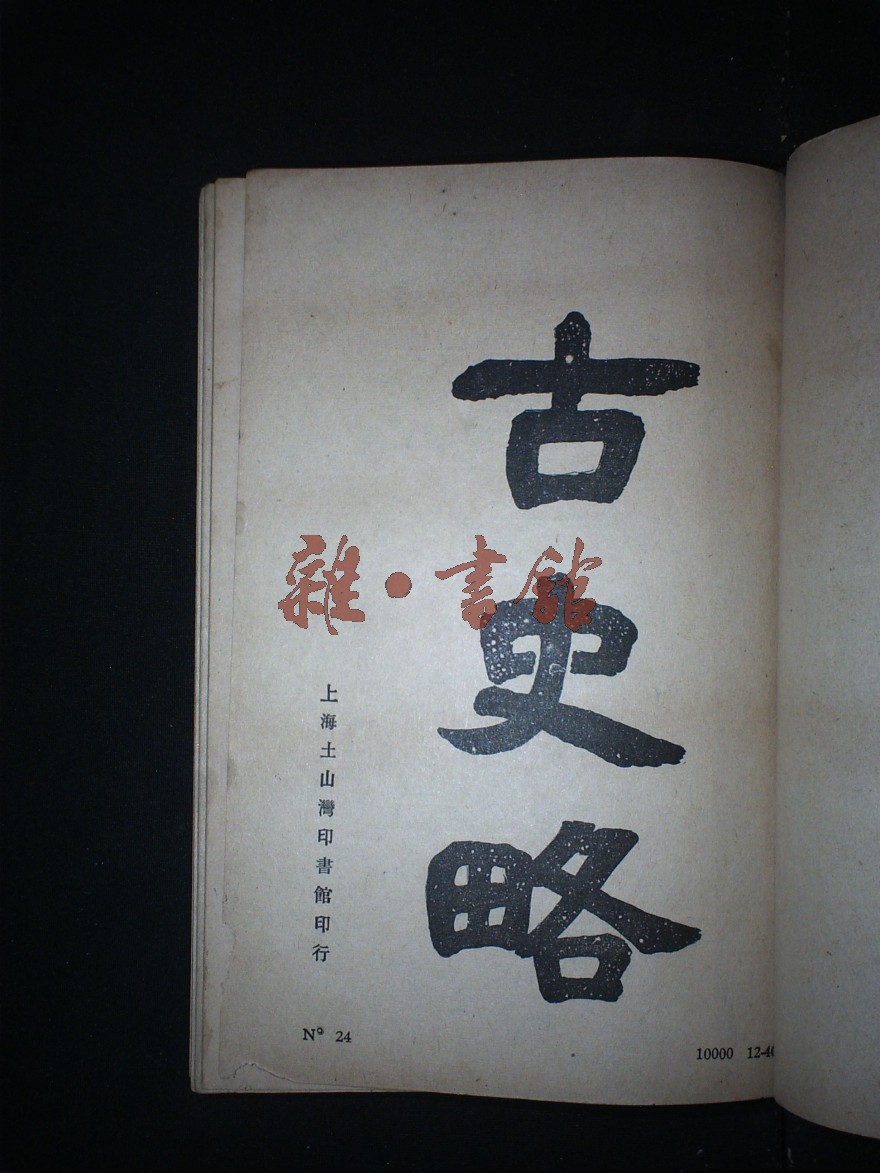 古史略
雜·書館
上海土山灣印書館印行
Nº 24
10000 12-40